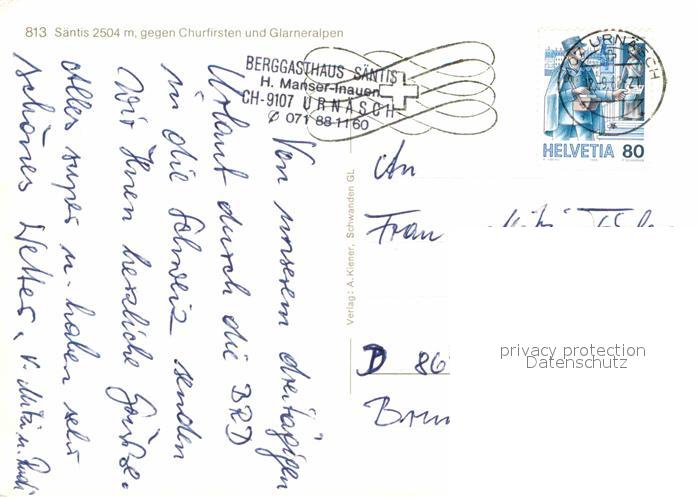 813 Säntis 2504 m, gegen Churfirsten und Glarneralpen
BERGGASTHAUS SÄNTIS
H. Manser-Inauen
CH-9107 URNÄSCH
✆ 071 88 11 60
9107 URNÄSCH
HELVETIA 80
Von unserem dreitägigen
Urlaub durch die BRD
in die Schweiz senden
wir Ihnen herzliche Grüße.
Alles super u. haben sehr
schönes Wetter. v. u. Rudi
Verlag: A. Kiener, Schwanden GL
An
Frau
D 86
privacy protection
Datenschutz